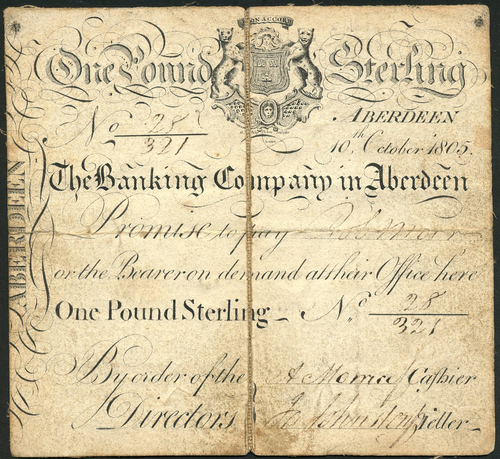 BON ACCORD
One Pound Sterling
ABERDEEN
No 28/321
10th October 1805.
The Banking Company in Aberdeen
Promise to pay
or the Bearer on demand at their Office here
One Pound Sterling – No 28/321
By order of the Cashier
Directors Teller
ABERDEEN